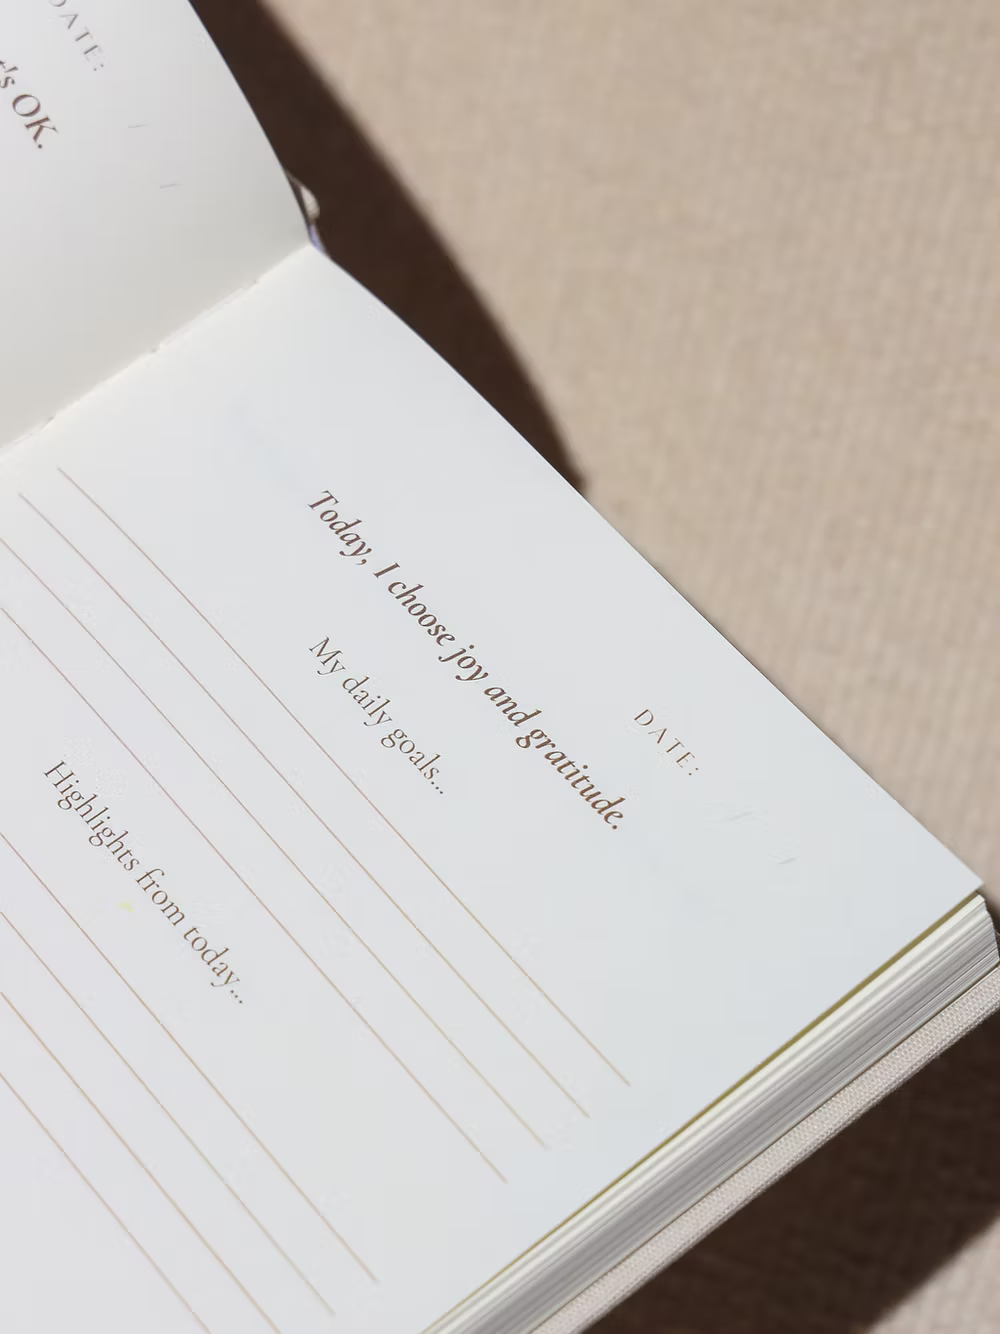 DATE:
OK.
DATE:
Today, I choose joy and gratitude.
My daily goals...
Highlights from today...